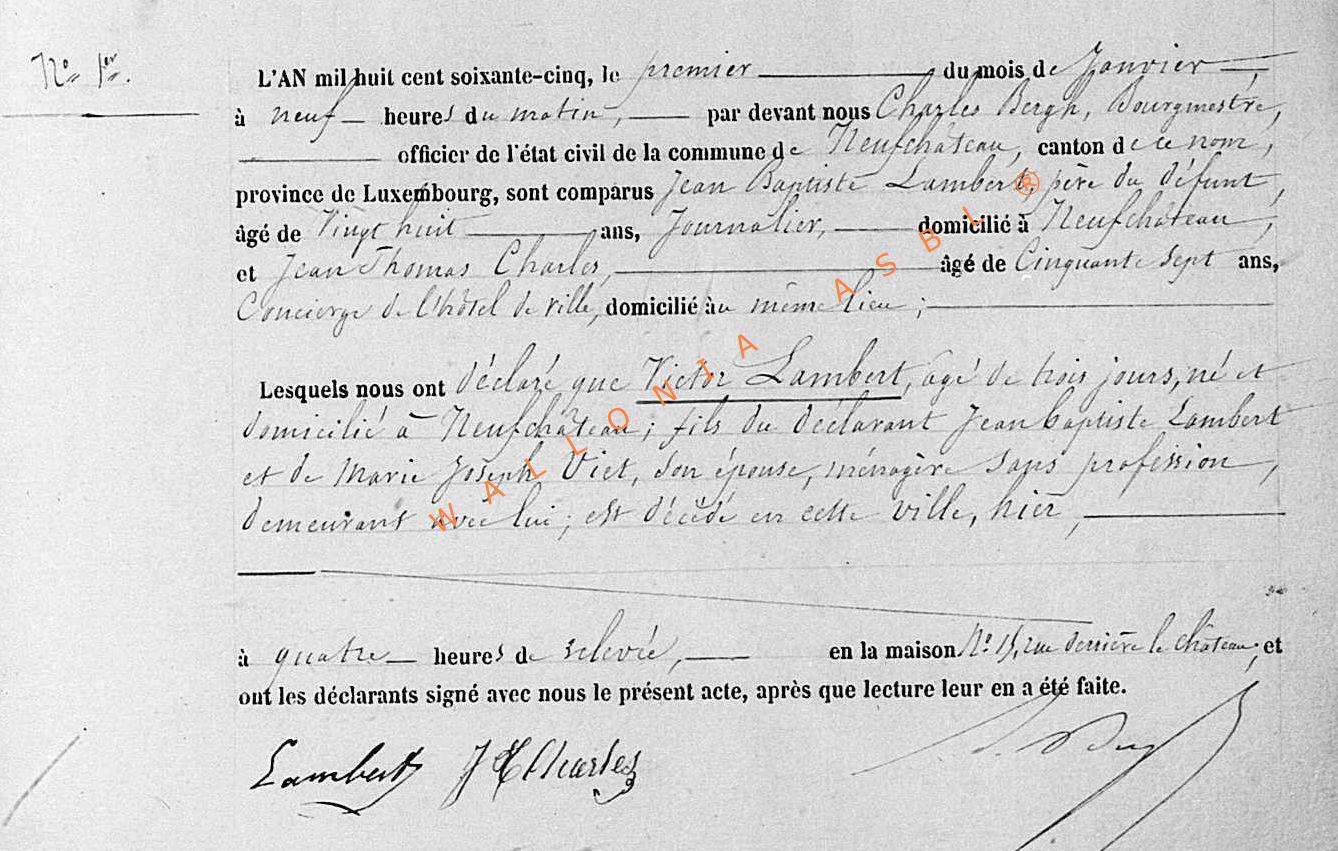 N° 1er.
L'AN mil huit cent soixante-cinq, le premier du mois de Janvier,
à neuf heures du matin, par devant nous Charles Bergh, Bourgmestre,
officier de l'état civil de la commune de Neufchâteau, canton de ce nom,
province de Luxembourg, sont comparus Jean Baptiste Lambert, père du défunt,
âgé de Vingt huit ans, Journalier, domicilié à Neufchâteau,
et Jean Thomas Charles, âgé de Cinquante sept ans,
Concierge de l'hôtel de ville, domicilié au même lieu ;
Lesquels nous ont déclaré que Victor Lambert, agé de trois jours, né et
domicilié à Neufchâteau ; fils du déclarant Jean baptiste Lambert
et de Marie Joseph Viet, son épouse, ménagère sans profession,
demeurant avec lui ; est décédé en cette ville, hier,
à quatre heures de relevée, en la maison N° 15, rue derrière le château, et
ont les déclarants signé avec nous le présent acte, après que lecture leur en a été faite.
Lambert J T Charles
WALLONIA ASBL ®